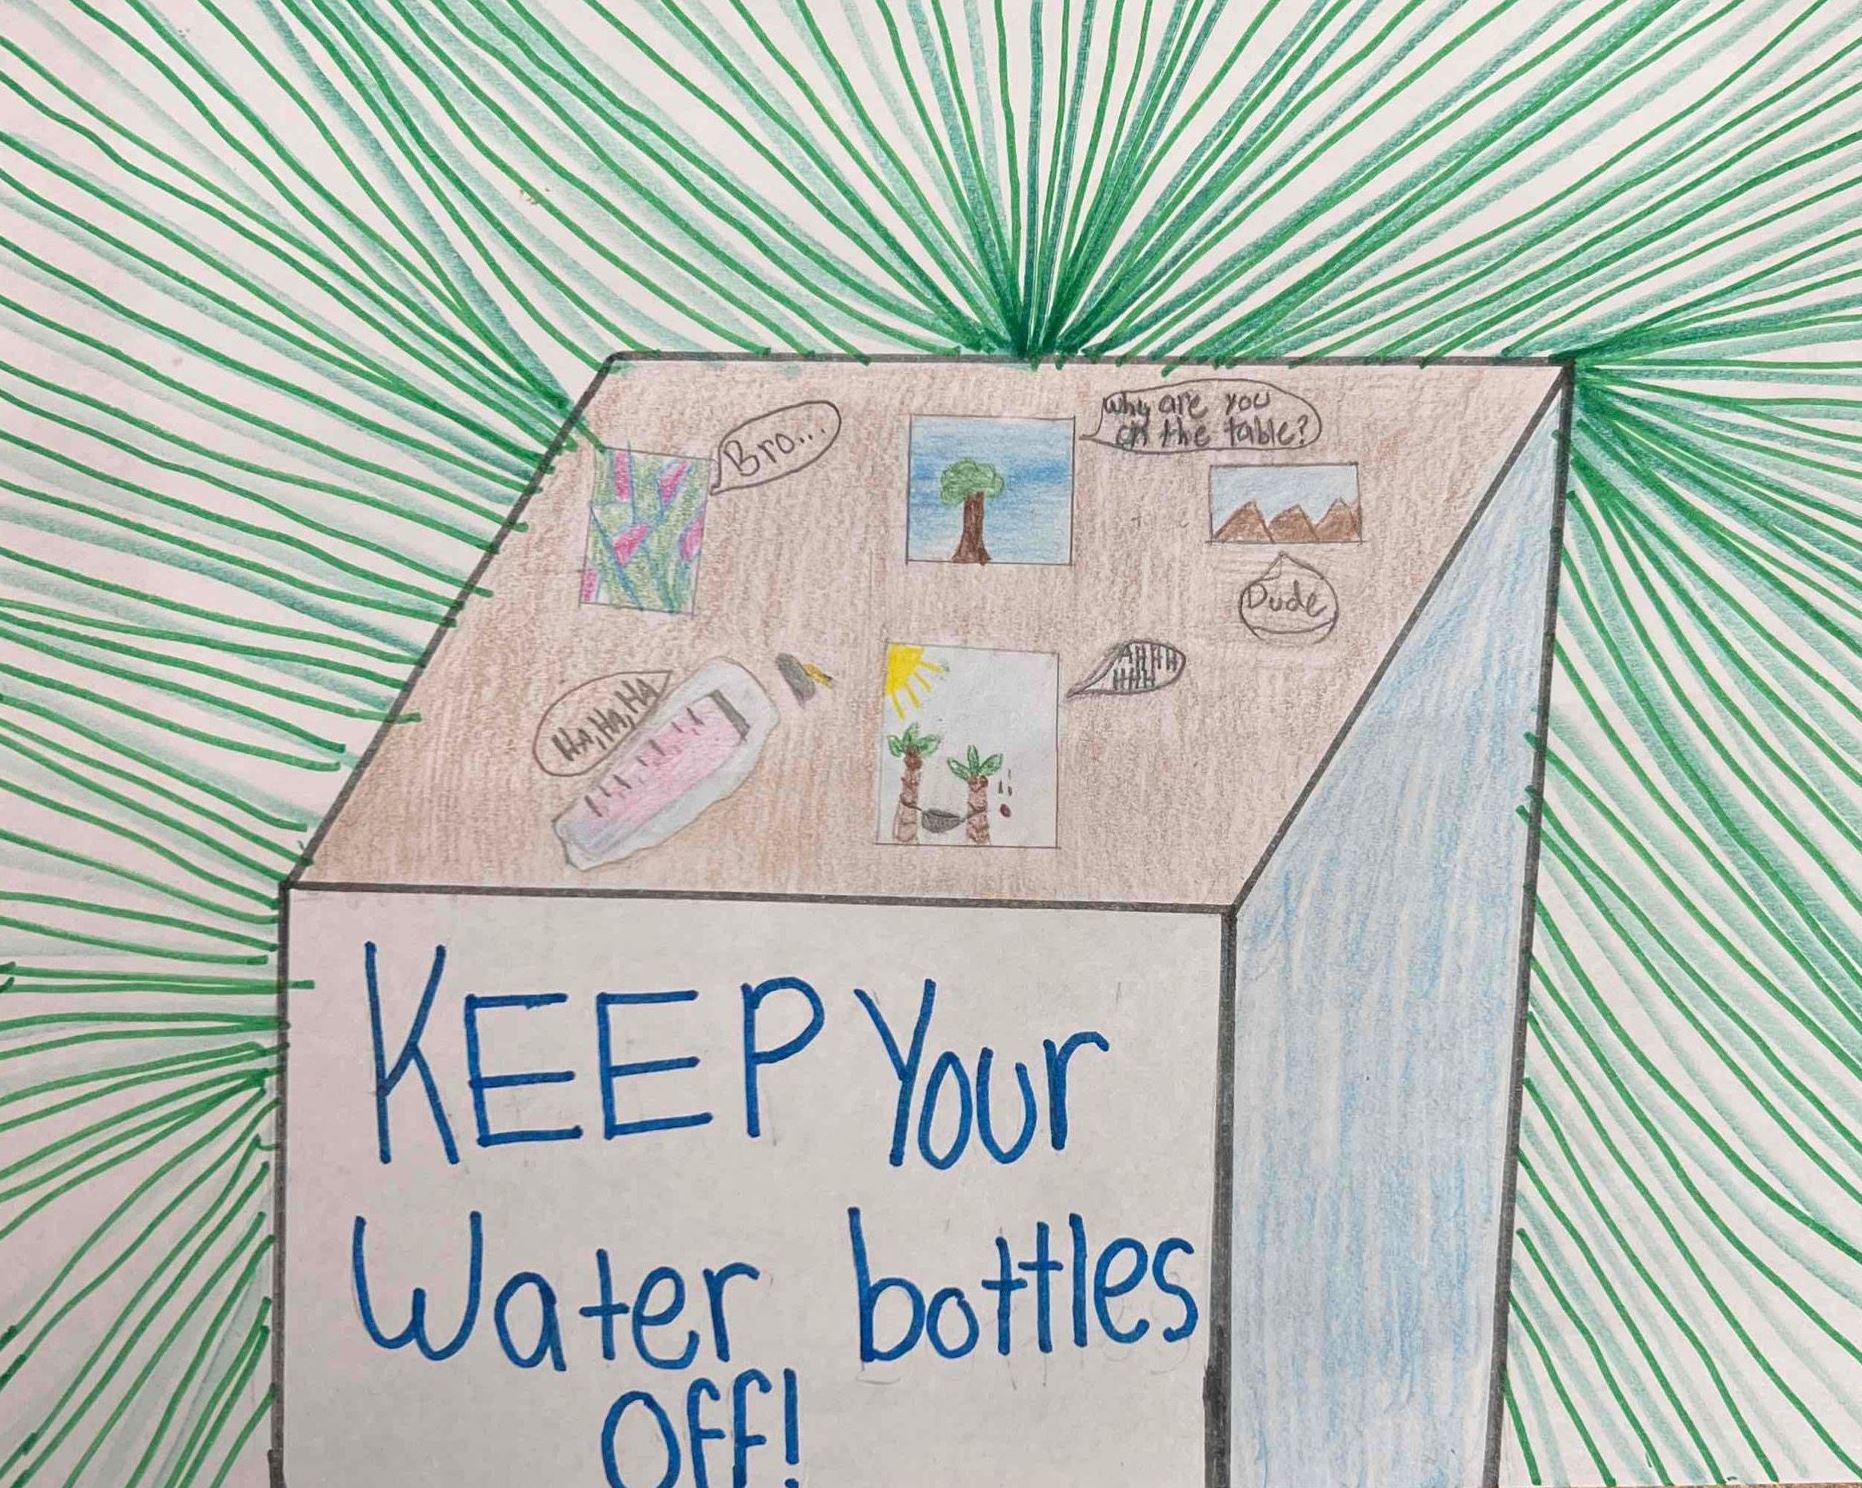 Bro...
Why are you
on the table?
Dude
HA, HA, HA
AHHH
HHH
KEEP Your
Water bottles
OFF!